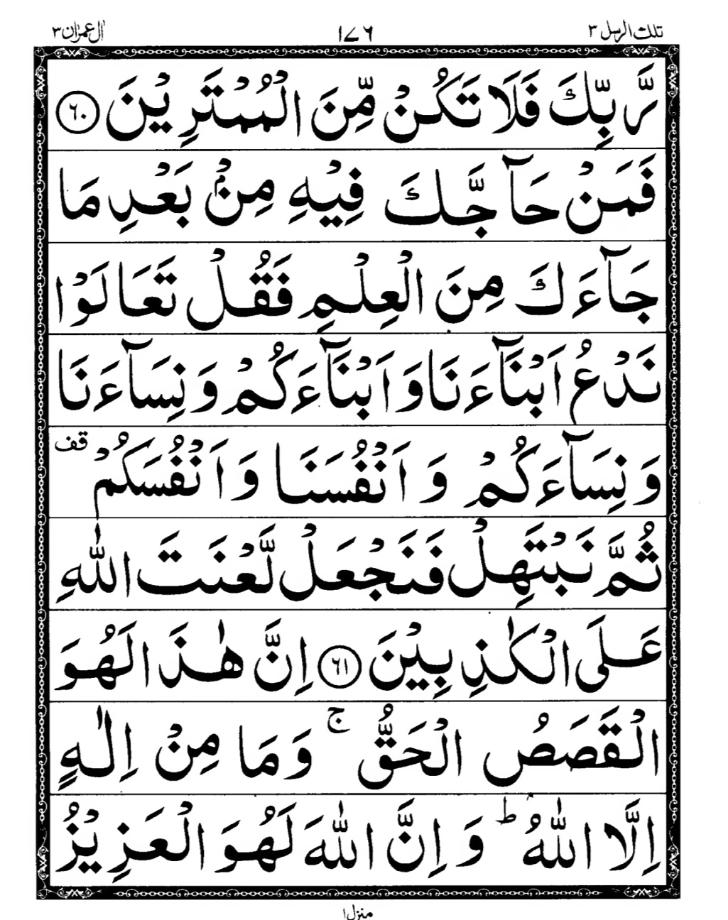 تلك الرسل ٣ ١٧٦ اٰل عمرٰن ٣
رَّبِّكَ فَلَا تَكُنْ مِّنَ الْمُمْتَرِيْنَ ﴿٦٠﴾
فَمَنْ حَآجَّكَ فِيْهِ مِنْۢ بَعْدِ مَا
جَآءَكَ مِنَ الْعِلْمِ فَقُلْ تَعَالَوْا
نَدْعُ اَبْنَآءَنَا وَاَبْنَآءَكُمْ وَنِسَآءَنَا
وَنِسَآءَكُمْ وَاَنْفُسَنَا وَاَنْفُسَكُمْ قف
ثُمَّ نَبْتَهِلْ فَنَجْعَلْ لَّعْنَتَ اللّٰهِ
عَلَى الْكٰذِبِيْنَ ﴿٦١﴾ اِنَّ هٰذَا لَهُوَ
الْقَصَصُ الْحَقُّ ۚ وَمَا مِنْ اِلٰهٍ
اِلَّا اللّٰهُ ؕ وَاِنَّ اللّٰهَ لَهُوَ الْعَزِيْزُ
منزل ١